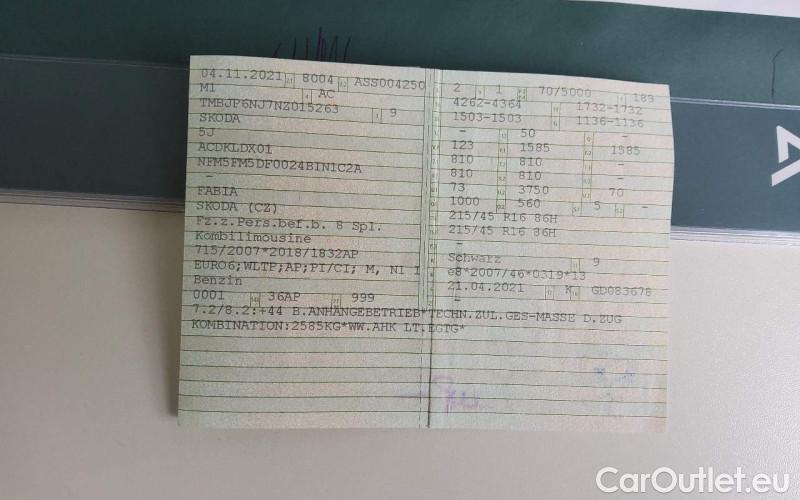 04.11.2021 8004 ASS004250
M1 AC
TMBJP6NJ7NZ015263 9
SKODA
5J
ACDKLDX01
NFM5FM5DF0024BINIC2A
-
FABIA
SKODA (CZ)
Fz.z.Pers.bef.b. 8 Spl.
Kombilimousine
715/2007*2018/1832AP
EURO6;WLTP;AP;PI/CI; M, N1 I
Benzin
0001 36AP 999
7.2/8.2:+44 B.ANHÄNGEBETRIEB*TECHN.ZUL.GES-MASSE D.ZUG
KOMBINATION:2585KG*WW.AHK LT.EGTG*
2 1 70/5000 189
4262-4364 1732-1732
1503-1503 1136-1136
- 50 -
123 1585 1585
810 810 -
810 810 -
73 3750 70
1000 560 5 -
215/45 R16 86H
215/45 R16 86H
-
Schwarz 9
e8*2007/46*0319*13
21.04.2021 K GD083678
-
CarOutlet.eu